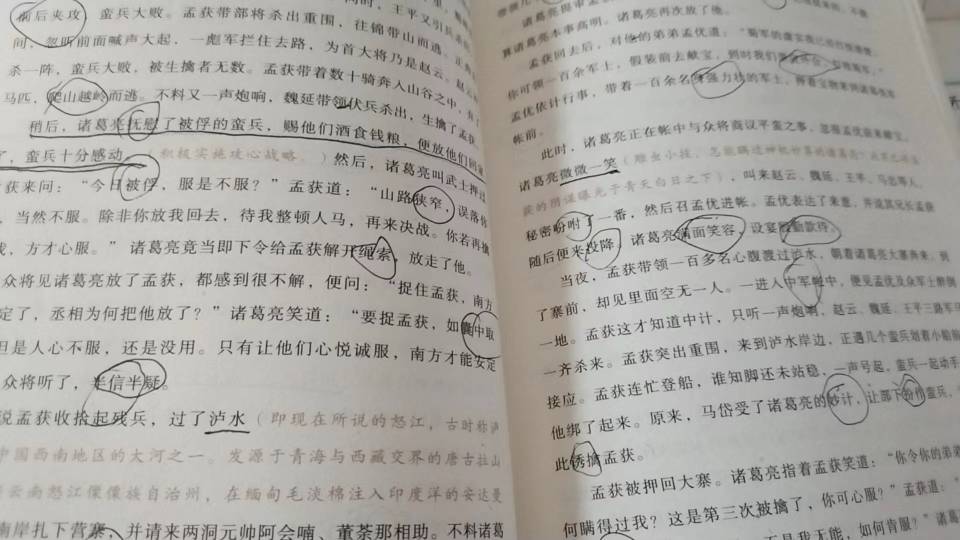 前后夹攻，蛮兵大败。孟获带部将杀出重围，往锦带山而逃。正
间，忽听前面喊声大起，一彪军拦住去路，为首大将乃是赵云。赵云
杀一阵，蛮兵大败，被生擒者无数。孟获带着数十骑奔入山谷之中，弃了
马匹，爬山越岭而逃。不料又一声炮响，魏延带领伏兵杀出，生擒了孟获
稍后，诸葛亮抚慰了被俘的蛮兵，赐他们酒食钱粮，便放他们回
了，蛮兵十分感动。（积极实施攻心战略。）然后，诸葛亮叫武士押过
获来问：“今日被俘，服是不服？”孟获道：“山路狭窄，误落你
，当然不服。除非你放我回去，待我整顿人马，再来决战。你若再擒
我，方才心服。”诸葛亮竟当即下令给孟获解开绳索，放走了他。
众将见诸葛亮放了孟获，都感到很不解，便问：“捉住孟获，南方
定了，丞相为何把他放了？”诸葛亮笑道：“要捉孟获，如囊中取
但是人心不服，还是没用。只有让他们心悦诚服，南方才能安定
众将听了，半信半疑。
说孟获收拾起残兵，过了泸水（即现在所说的怒江，古时称泸
中国西南地区的大河之一。发源于青海与西藏交界的唐古拉山
云南怒江傈僳族自治州，在缅甸毛淡棉注入印度洋的安达曼
南岸扎下营寨，并请来两洞元帅阿会喃、董荼那相助。不料诸葛
诸葛亮本事高明。诸葛亮再次放了他。
孟获回去后，对他的弟弟孟优道：“蜀军的虚实我已
你可领一百余军士，假装前去献宝，到时我们
孟优依计行事，带着一百余名身强力壮的军士，押着宝物来到诸葛亮军
帐前。
此时，诸葛亮正在帐中与众将商议平蛮之事，忽报孟优前来献宝。
诸葛亮微微一笑（雕虫小技，怎能瞒过神机妙算的诸葛亮？
获的阴谋曝光于青天白日之下），叫来赵云、魏延、王平、马忠等人，
秘密吩咐了一番，然后召孟优进帐。孟优表达了来意，并说其兄长孟获
随后便来投降。诸葛亮满面笑容，设宴殷勤款待。
当夜，孟获带领一百多名心腹渡过泸水，朝着诸葛亮大寨奔来，到
了寨前，却见里面空无一人。一进入中军帐中，便见孟优及众军士醉倒
一地。孟获这才知道中计，只听一声炮响，赵云、魏延、王平三路军马
一齐杀来。孟获突出重围，来到泸水岸边，正遇几个蛮兵划着小船前来
接应。孟获连忙登船，谁知脚还未站稳，一声号起，蛮兵一起动手
他绑了起来。原来，马岱受了诸葛亮的妙计，让部下扮作蛮兵，
此诱擒孟获。
孟获被押回大寨。诸葛亮指着孟获笑道：“你令你的弟弟
何瞒得过我？这是第三次被擒了，你可心服？”孟获道：“
不是我无能，如何肯服？”诸葛